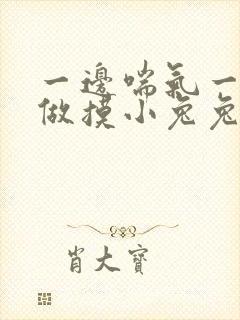 一邊喘氣一
做摸小兔兔
肖大寶